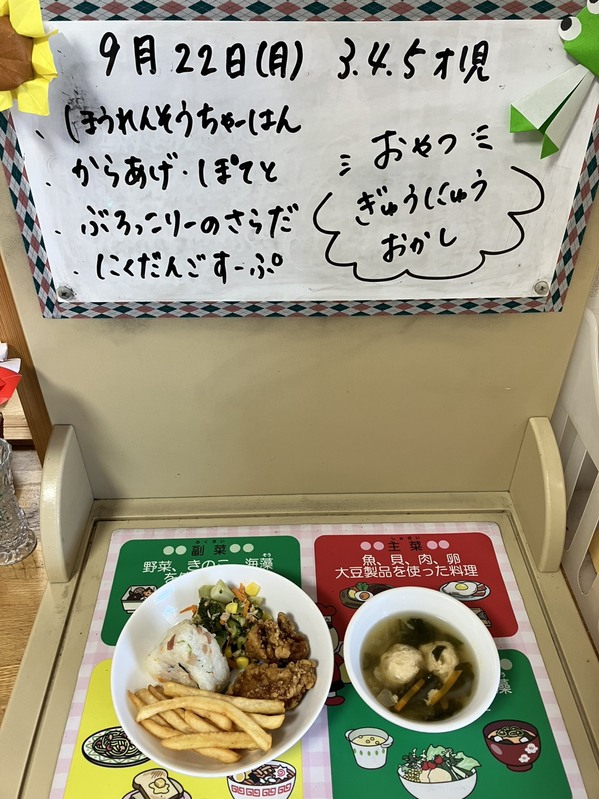 9月22日(月) 3.4.5才児
・ほうれんそうちゃーはん
・からあげ・ぽてと
・ぶろっこりーのさらだ
・にくだんごすーぷ
おやつ
ぎゅうにゅう
おかし
副菜
野菜、きのこ、海藻
主菜
魚、貝、肉、卵
大豆製品を使った料理